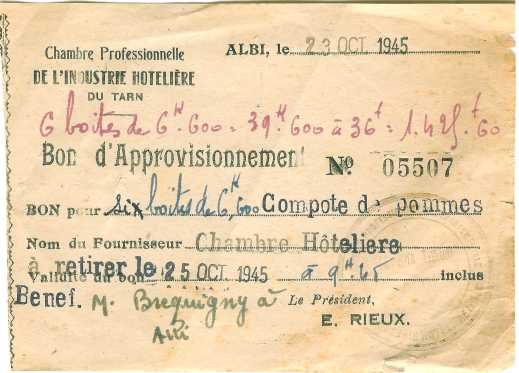 Chambre Professionnelle
DE L'INDUSTRIE HOTELIÈRE
DU TARN
ALBI, le 23 OCT 1945
6 boites de 6K.600 = 39K.600 à 36f = 1.425f60
Bon d'Approvisionnement No 05507
BON pour six boites de 6K,600 Compote de pommes
Nom du Fournisseur Chambre Hôteliere
à retirer le
Validité du bon 25 OCT 1945 à 9H.45 inclus
Benef. M. Brequigny à
Albi
Le Président,
E. RIEUX.